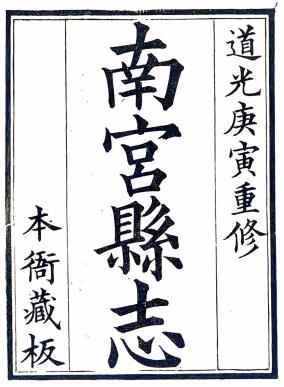 道光庚寅重修
南宮縣志
本衙藏板